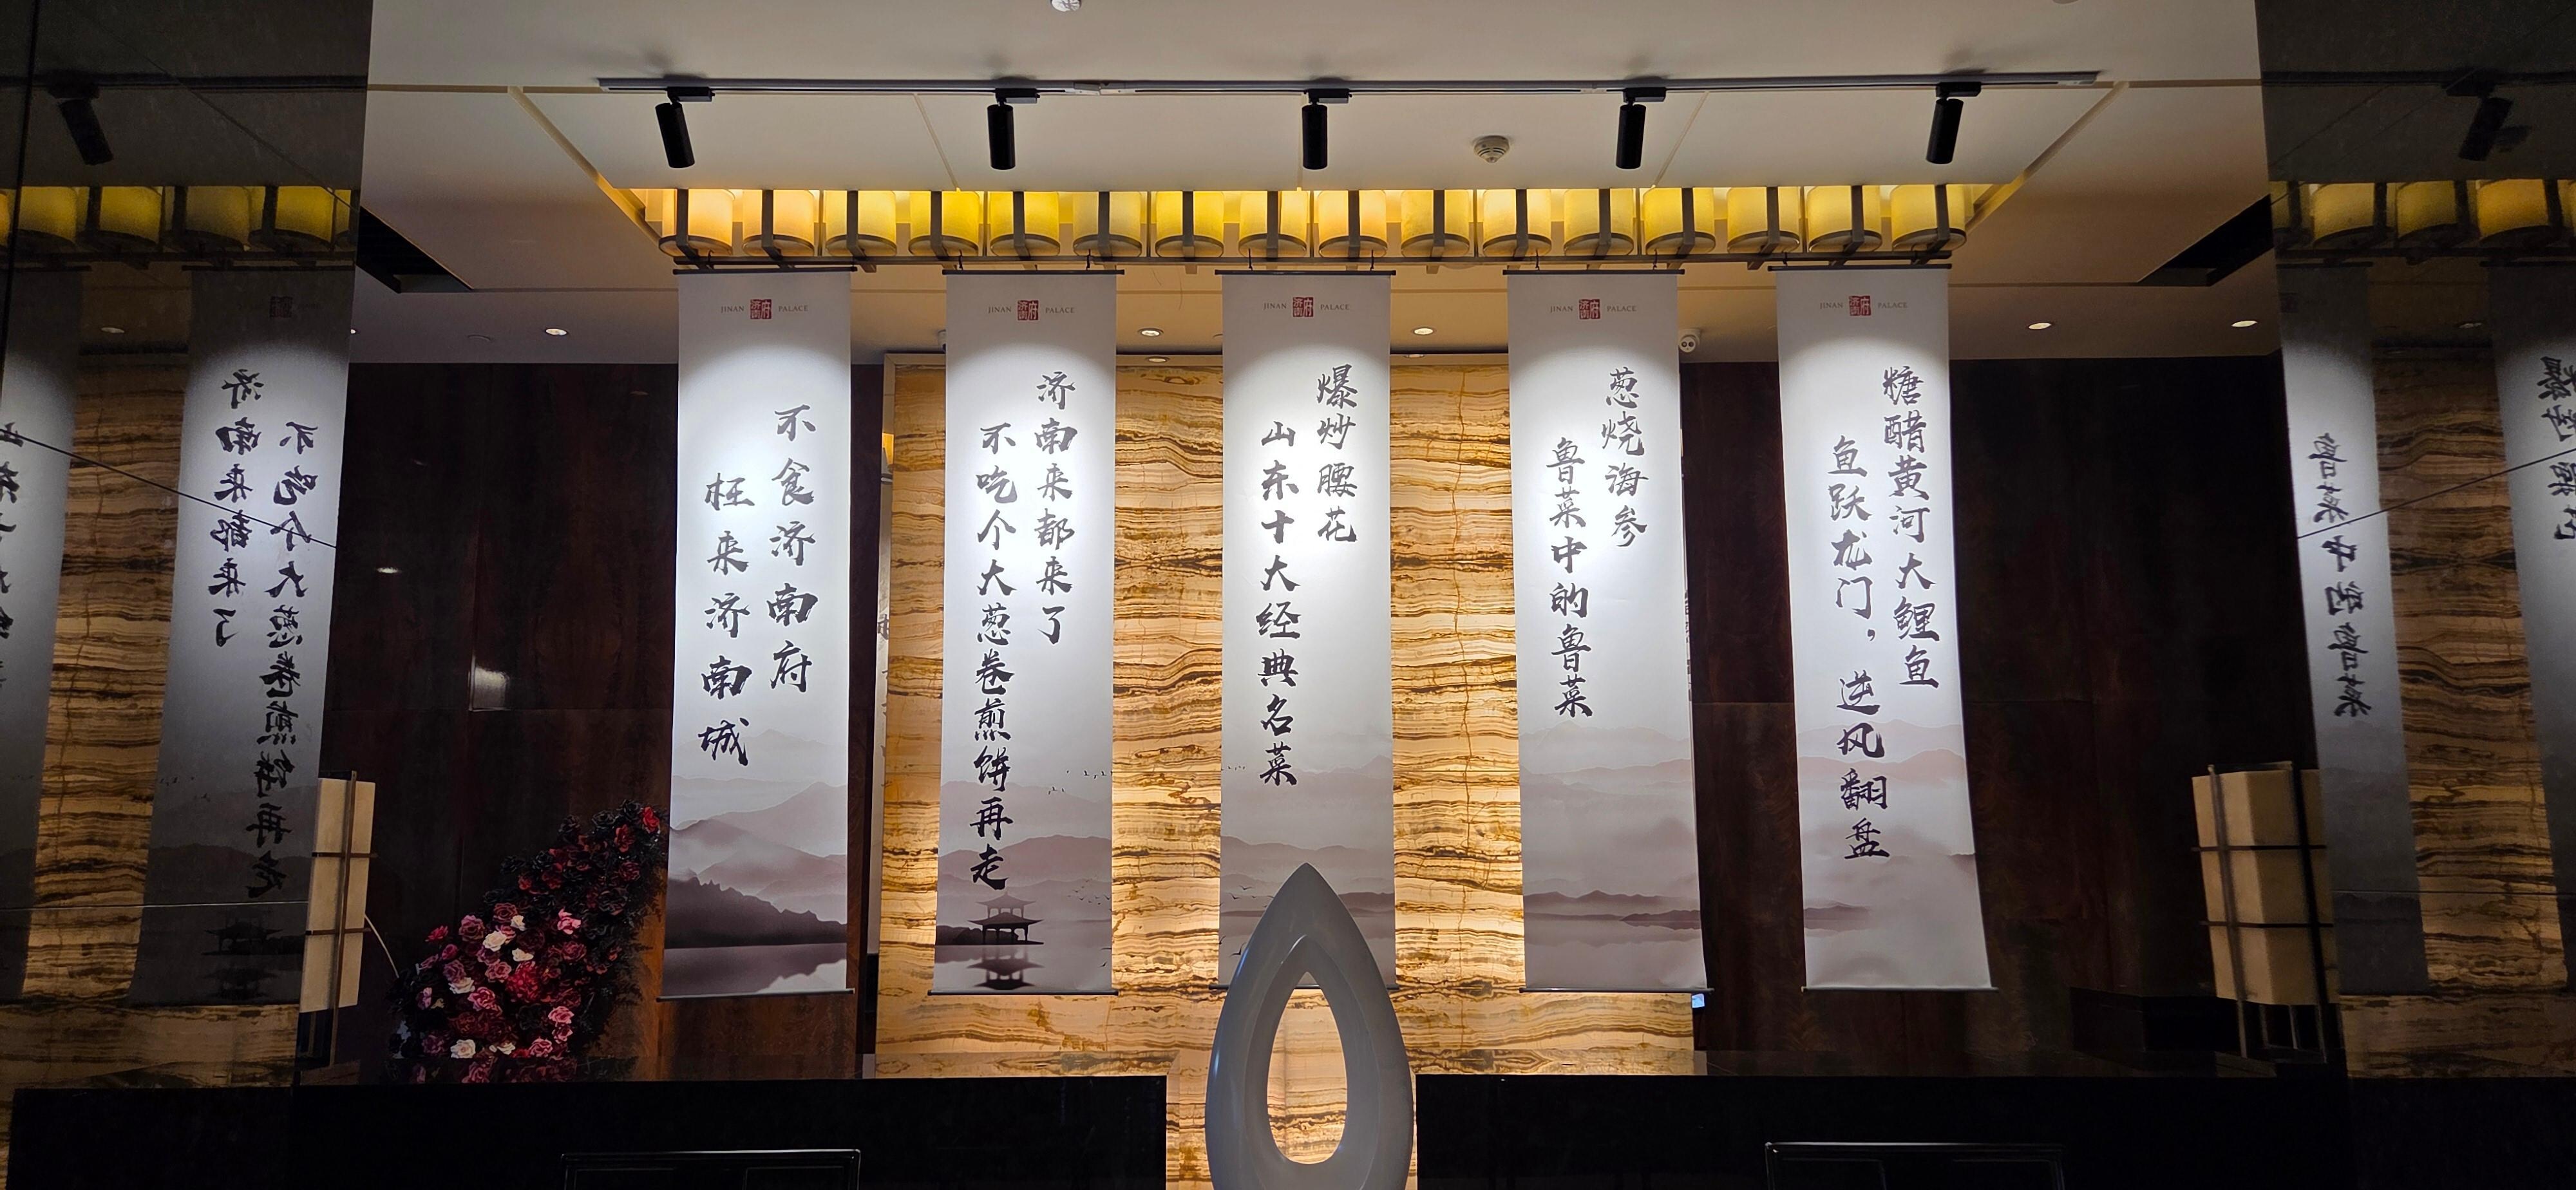 JINAN 济南府 PALACE
不食济南府
枉来济南城
JINAN 济南府 PALACE
济南来都来了
不吃个大葱卷煎饼再走
JINAN 济南府 PALACE
爆炒腰花
山东十大经典名菜
JINAN 济南府 PALACE
葱烧海参
鲁菜中的鲁菜
JINAN 济南府 PALACE
糖醋黄河大鲤鱼
鱼跃龙门，逆风翻盘